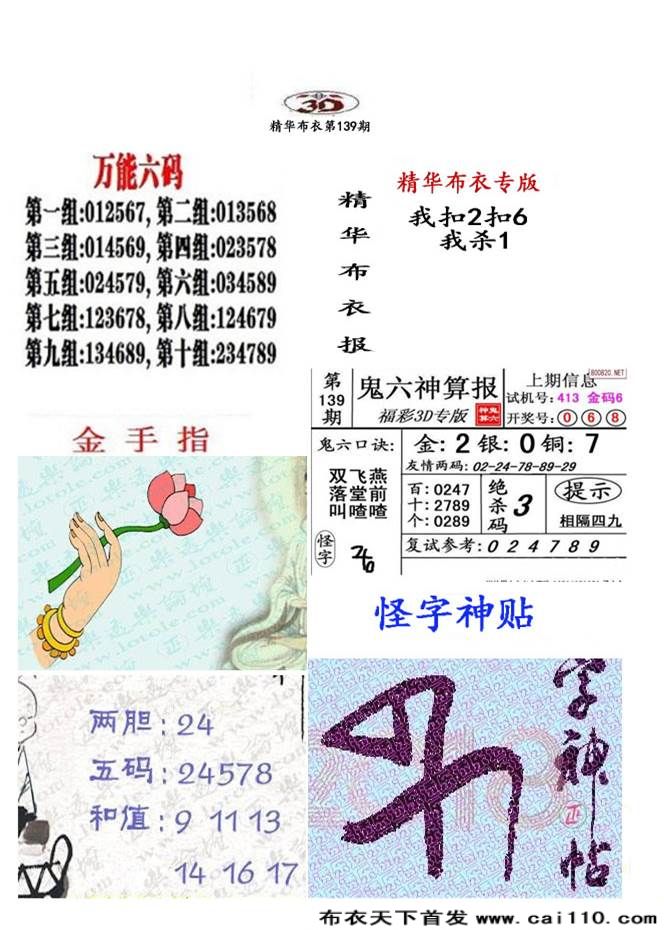 3D
精华布衣第139期
万能六码
第一组:012567, 第二组:013568
第三组:014569, 第四组:023578
第五组:024579, 第六组:034589
第七组:123678, 第八组:124679
第九组:134689, 第十组:234789
精华布衣报
精华布衣专版
我扣2扣6
我杀1
第139期
鬼六神算报
福彩3D专版
神鬼算六
800820.NET
上期信息
试机号: 413 金码6
开奖号: 0 6 8
鬼六口诀:
双飞燕
落堂前
叫喳喳
怪字
金: 2 银: 0 铜: 7
友情两码: 02-24-78-89-29
百: 0247
十: 2789
个: 0289
绝杀码 3
提示
相隔四九
复试参考: 0 2 4 7 8 9
金手指
两胆: 24
五码: 24578
和值: 9 11 13
14 16 17
怪字神贴
字神帖
布衣天下首发 www.cai110.com